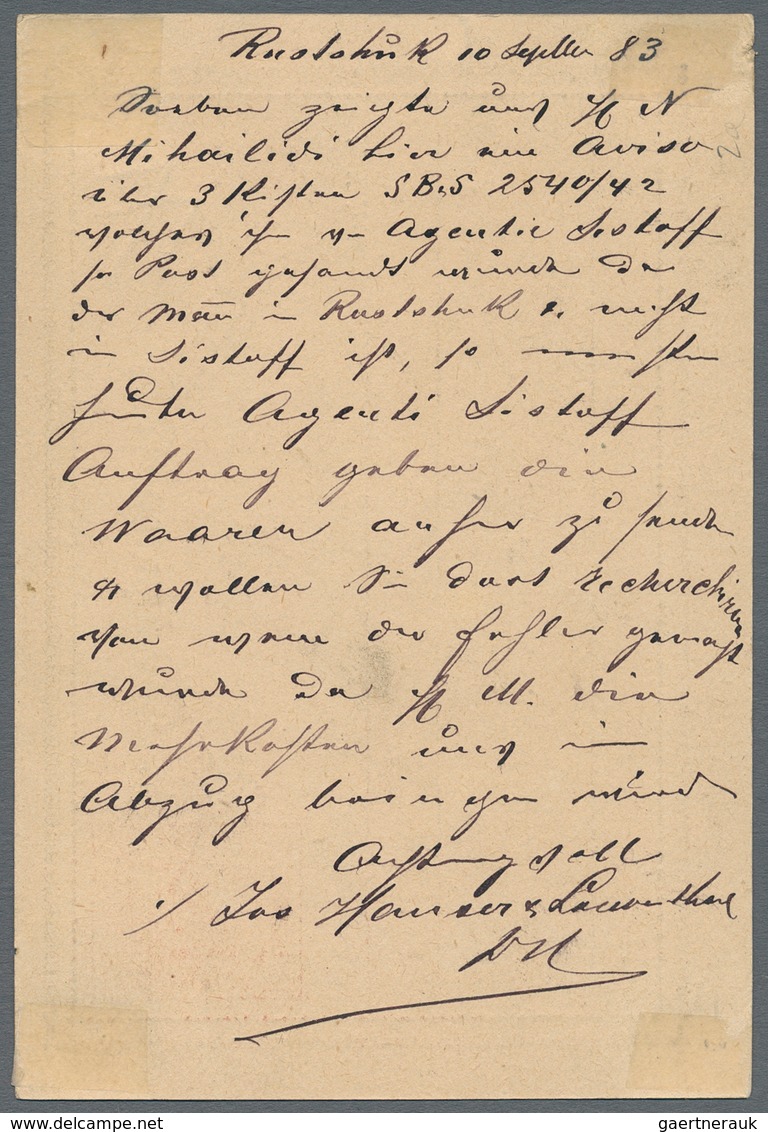 Rustshuk 10 Septber 83
Soeben zeigte uns H N
Mihailidi hier ein Aviso
über 3 Kisten S B&S 2540/42
welches ihm v Agentie Sistoff
pr Post gesandt wurde Da
der Mann in Rustshuk & nicht
in Sistoff ist, so mussten
heute Agenti Sistoff
Auftrag geben die
Waaren anher zu senden
& wollen Sie dort recherchiren
von wem der Fehler gemacht
wurde Da H M. die
Mehrkosten uns in
Abzug bringen wird
Achtungsvoll
Jos Hauser & Löwenthal
delcampe.net
gaertnerauk